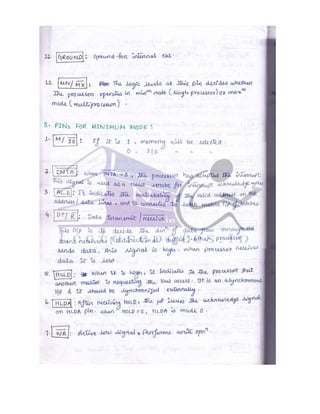 12. GROUND : Ground for internal ckt.
13. MN/MX : The logic levels at this pin decides whether
the processor operates in minm mode (single processor) or maxm
mode (multiprocessor).
2- PINs FOR MINIMUM MODE :
1- M/IO : If it is 1, memory will be selected.
0, I/O " "
2. INTA : When INTA = 0, the processor has accepted the interrupt.
This signal is used as a read strobe for interrupt acknowledge cycle
3. ALE : It indicates the availability of valid address on the
address/data lines, and is connected to latch enable i/p of latches
4. DT/R : Data transmit/receive
This o/p is to decide the dirn of data flow through the
transreceivers (bidirectional buffers). When processor
sends data, this signal is high. When processor receives
data it is low.
5. HOLD : When it is high, it indicates to the processor that
another master is requesting the bus access. It is an asynchronous
i/p & it should be synchronized externally.
6. HLDA : After receiving HOLD, the µP issues the acknowledge signal
on HLDA pin. When HOLD = 0, HLDA is made 0.
7. WR : Active low signal & performs write opn.